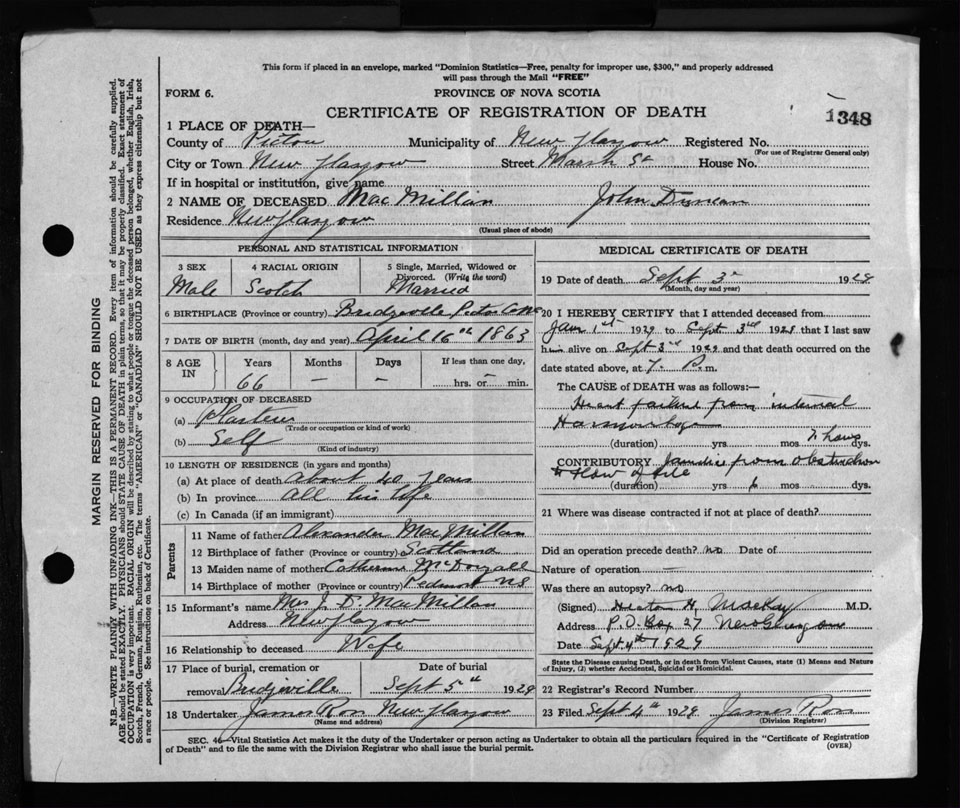 This form if placed in an envelope, marked "Dominion Statistics—Free, penalty for improper use, $300," and properly addressed
will pass through the Mail "FREE"
FORM 6.
PROVINCE OF NOVA SCOTIA
CERTIFICATE OF REGISTRATION OF DEATH
1348
1 PLACE OF DEATH—
County of Pictou Municipality of New Glasgow Registered No.
(For use of Registrar General only)
City or Town New Glasgow Street Marsh St House No.
If in hospital or institution, give name
2 NAME OF DECEASED MacMillan John Duncan
Residence New Glasgow
(Usual place of abode)
PERSONAL AND STATISTICAL INFORMATION
3 SEX 4 RACIAL ORIGIN 5 Single, Married, Widowed or
Divorced. (Write the word)
Male Scotch Married
6 BIRTHPLACE (Province or country) Bridgeville Pictou Co NS
7 DATE OF BIRTH (month, day and year) April 16th 1863
8 AGE IN Years Months Days If less than one day,
66 — — hrs. or min.
9 OCCUPATION OF DECEASED
(a)
(Trade or occupation or kind of work)
(b) Self
(Kind of industry)
10 LENGTH OF RESIDENCE (in years and months)
(a) At place of death About 40 years
(b) In province All his life
(c) In Canada (if an immigrant)
Parents
11 Name of father Alexander MacMillan
12 Birthplace of father (Province or country) Scotland
13 Maiden name of mother Catherine McDougall
14 Birthplace of mother (Province or country) Piedmont NS
15 Informant's name Mrs J. D. MacMillan
Address New Glasgow
16 Relationship to deceased Wife
17 Place of burial, cremation or Date of burial
removal Bridgeville Sept 5th 1929
18 Undertaker James Ross New Glasgow
(Name and address)
MEDICAL CERTIFICATE OF DEATH
19 Date of death Sept 3 1929
(Month, day and year)
20 I HEREBY CERTIFY that I attended deceased from
Jan 1st 1929 to Sept 3rd 1929 that I last saw
him alive on Sept 3rd 1929 and that death occurred on the
date stated above, at 7. P.m.
The CAUSE of DEATH was as follows:—
Heart failure from internal
Haemorrhage
(duration) yrs mos hours dys.
CONTRIBUTORY Jaundice from obstruction
to flow of bile
(duration) yrs 6 mos dys.
21 Where was disease contracted if not at place of death?
Did an operation precede death? no Date of
Nature of operation —
Was there an autopsy? no
(Signed) H. MacKay M.D.
Address P.O. Box 27 New Glasgow
Date Sept. 4th 1929
State the Disease causing Death, or in death from Violent Causes, state (1) Means and Nature
of Injury, (2) whether Accidental, Suicidal or Homicidal.
22 Registrar's Record Number
23 Filed Sept 4th 1929 James Ross
(Division Registrar)
SEC. 46—Vital Statistics Act makes it the duty of the Undertaker or person acting as Undertaker to obtain all the particulars required in the "Certificate of Registration
of Death" and to file the same with the Division Registrar who shall issue the burial permit.
(OVER)
MARGIN RESERVED FOR BINDING
N.B.—WRITE PLAINLY WITH UNFADING INK—THIS IS A PERMANENT RECORD. Every item of information should be carefully supplied.
AGE should be stated EXACTLY. PHYSICIANS should STATE CAUSE OF DEATH in plain terms, so that it may be properly classified. Exact statement of
OCCUPATION is very important. RACIAL ORIGIN will be described by stating to what people or tongue the deceased person belonged, whether English, Irish,
Scotch, French, German, Russian, Ruthenian, etc. The terms "AMERICAN" or "CANADIAN" SHOULD NOT BE USED as they express citizenship but not
a race or people. See instructions on back of Certificate.